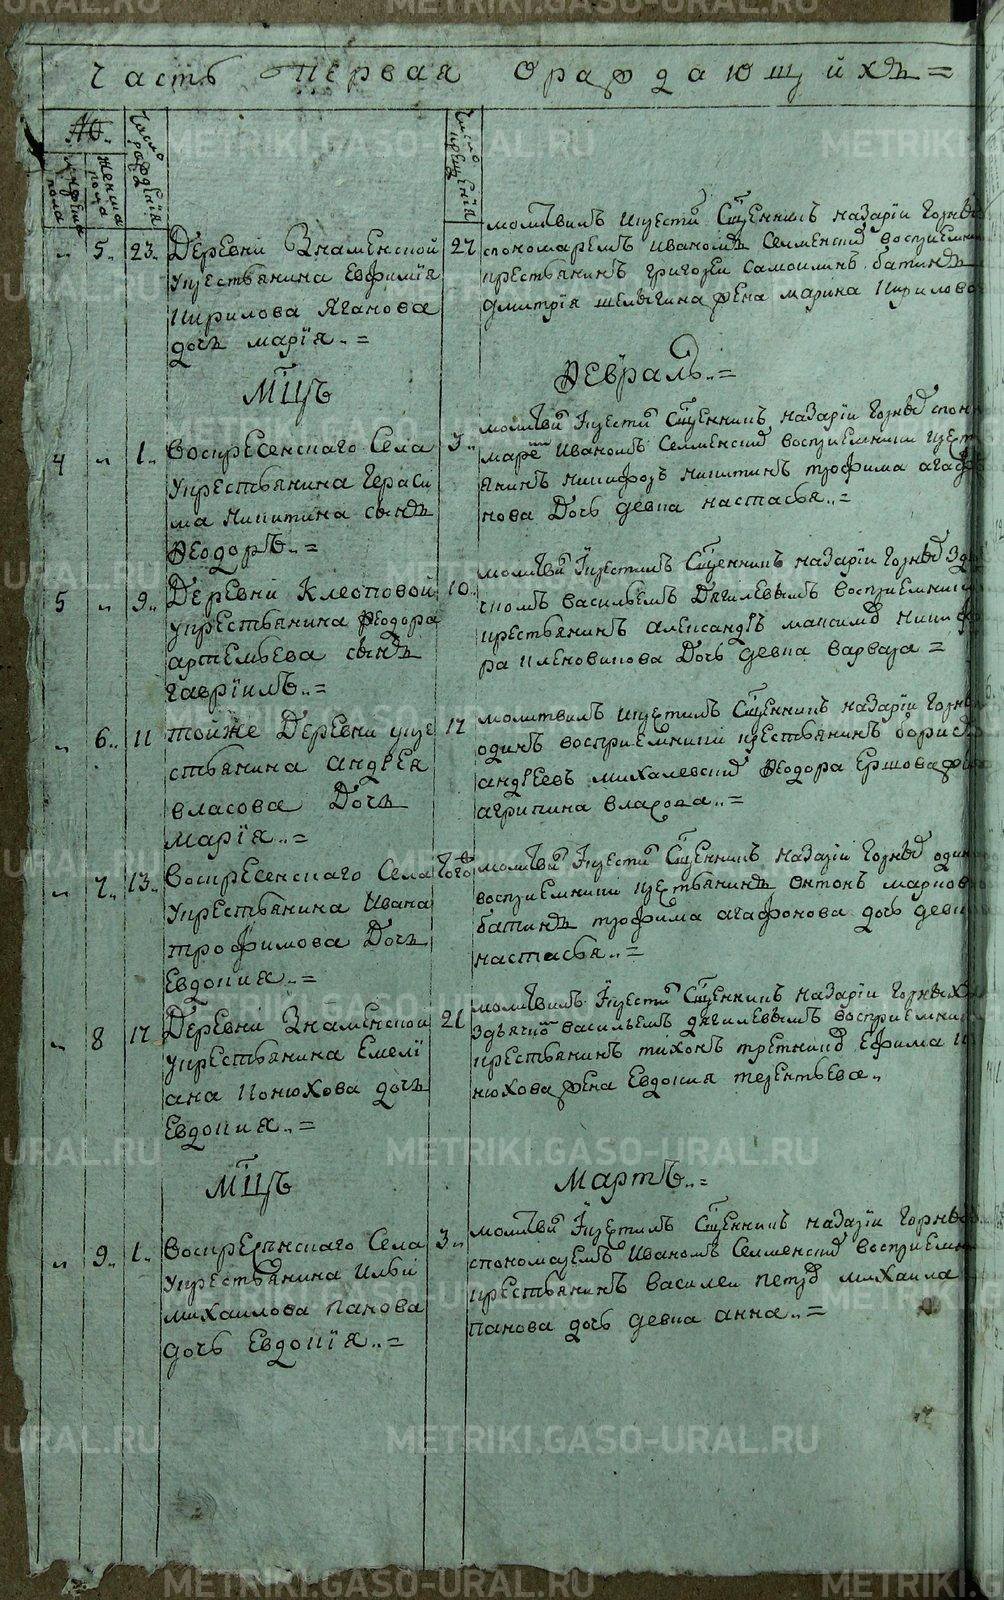 Часть Первая Ораждающихъ =
№
мужеска пола
Женска пола
Число рождения
Число крещения
" 5. 23. Деревни Знаменской
укрестьянина Евфимїя
Кирилова Яганова
дочь марїя.. =
27
молитвилъ икрести Сщенникъ назарїи Горных
спономаремъ иваномъ Селменски. восприемни
крестьянинъ григореи Самоилинъ батинъ
дмитрїя шелыгина жена марина Кирилова
Мцъ Февраль.. =
4 " 1.. Воскресенскаго Села
укрестьянина Гераси
ма Никитина сынъ
Феодоръ.. =
3..
молитви Iкрести Сщенникъ назарїи Горных споно
маремъ Иваномъ Селменски восприемники крест
янинъ никифоръ никитинъ трофима агафо
нова Дочь девка настасья.. =
5 " 9.. Деревни Клеоповой
укрестьянина Феодора
артемьева сынъ
гаврїилъ.. =
10..
молитви Iкрестилъ Сщенникъ назарїи Горных здья
чкомъ васильемъ Дягилевымъ восприемники
крестьянинъ александръ максимо никифо
ра Дочь девка варвара =
" 6.. 11 тойже Деревни укре
стьянина андрея
власова Дочь
марїя.. =
17
молитвилъ икрестилъ Сщенникъ назарїи Горных
одинъ восприемники крестьянинъ борисъ
андреевъ михалевски Феодора Ершова жена
агрипина власова.. =
" 7.. 13.. Воскресенскаго Села
укрестьянина Ивана
трофимова Дочь
Евдокия.. =
того
молитви Iкрести Сщенникъ назарїи Горных один
восприемники крестьянинъ антонъ марков
батинъ трофима агафонова дочь девка
настасья.. =
" 8 17 Деревни Знаменской
укрестьянина Емелї
ана Конюхова дочь
Евдокия.. =
21
молитвилъ Iкрести Сщенникъ назарїи Горныхъ
здьячко васильемъ дягилевымъ восприемни
крестьянинъ тихонъ Ефима Ко
нюхова жена Евдокия терентьева..
Мцъ Мартъ.. =
" 9. 1.. Воскресенскаго Села
укрестьянина Ильи
михаилова панова
дочь Евдокїя.. =
3..
молитви Iкрестилъ Сщенникъ назарїи Горных
спономаремъ Иваномъ Селменски восприемни
крестьянинъ василеи петро михаила
панова дочь девка анна.. =
METRIKI.GASO-URAL.RU